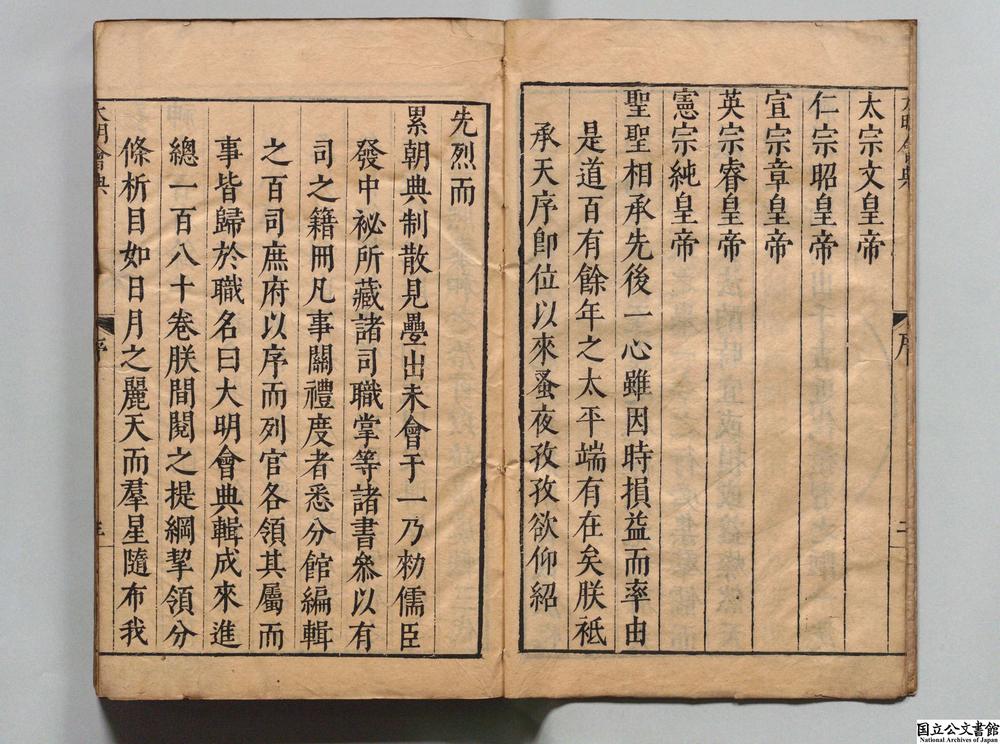 太宗文皇帝
仁宗昭皇帝
宣宗章皇帝
英宗睿皇帝
憲宗純皇帝
聖聖相承先後一心雖因時損益而率由
是道百有餘年之太平端有在矣朕祗
承天序卽位以來蚤夜孜孜欲仰紹
序
二
先烈而
累朝典制散見疊出未會于一乃勑儒臣
發中祕所藏諸司職掌等諸書叅以有
司之籍冊凡事關禮度者悉分館編輯
之百司庶府以序而列官各領其屬而
事皆歸於職名曰大明會典輯成來進
總一百八十卷朕間閱之提綱挈領分
條析目如日月之麗天而羣星隨布我
大明會典
序
三
国立公文書館
National Archives of Japan